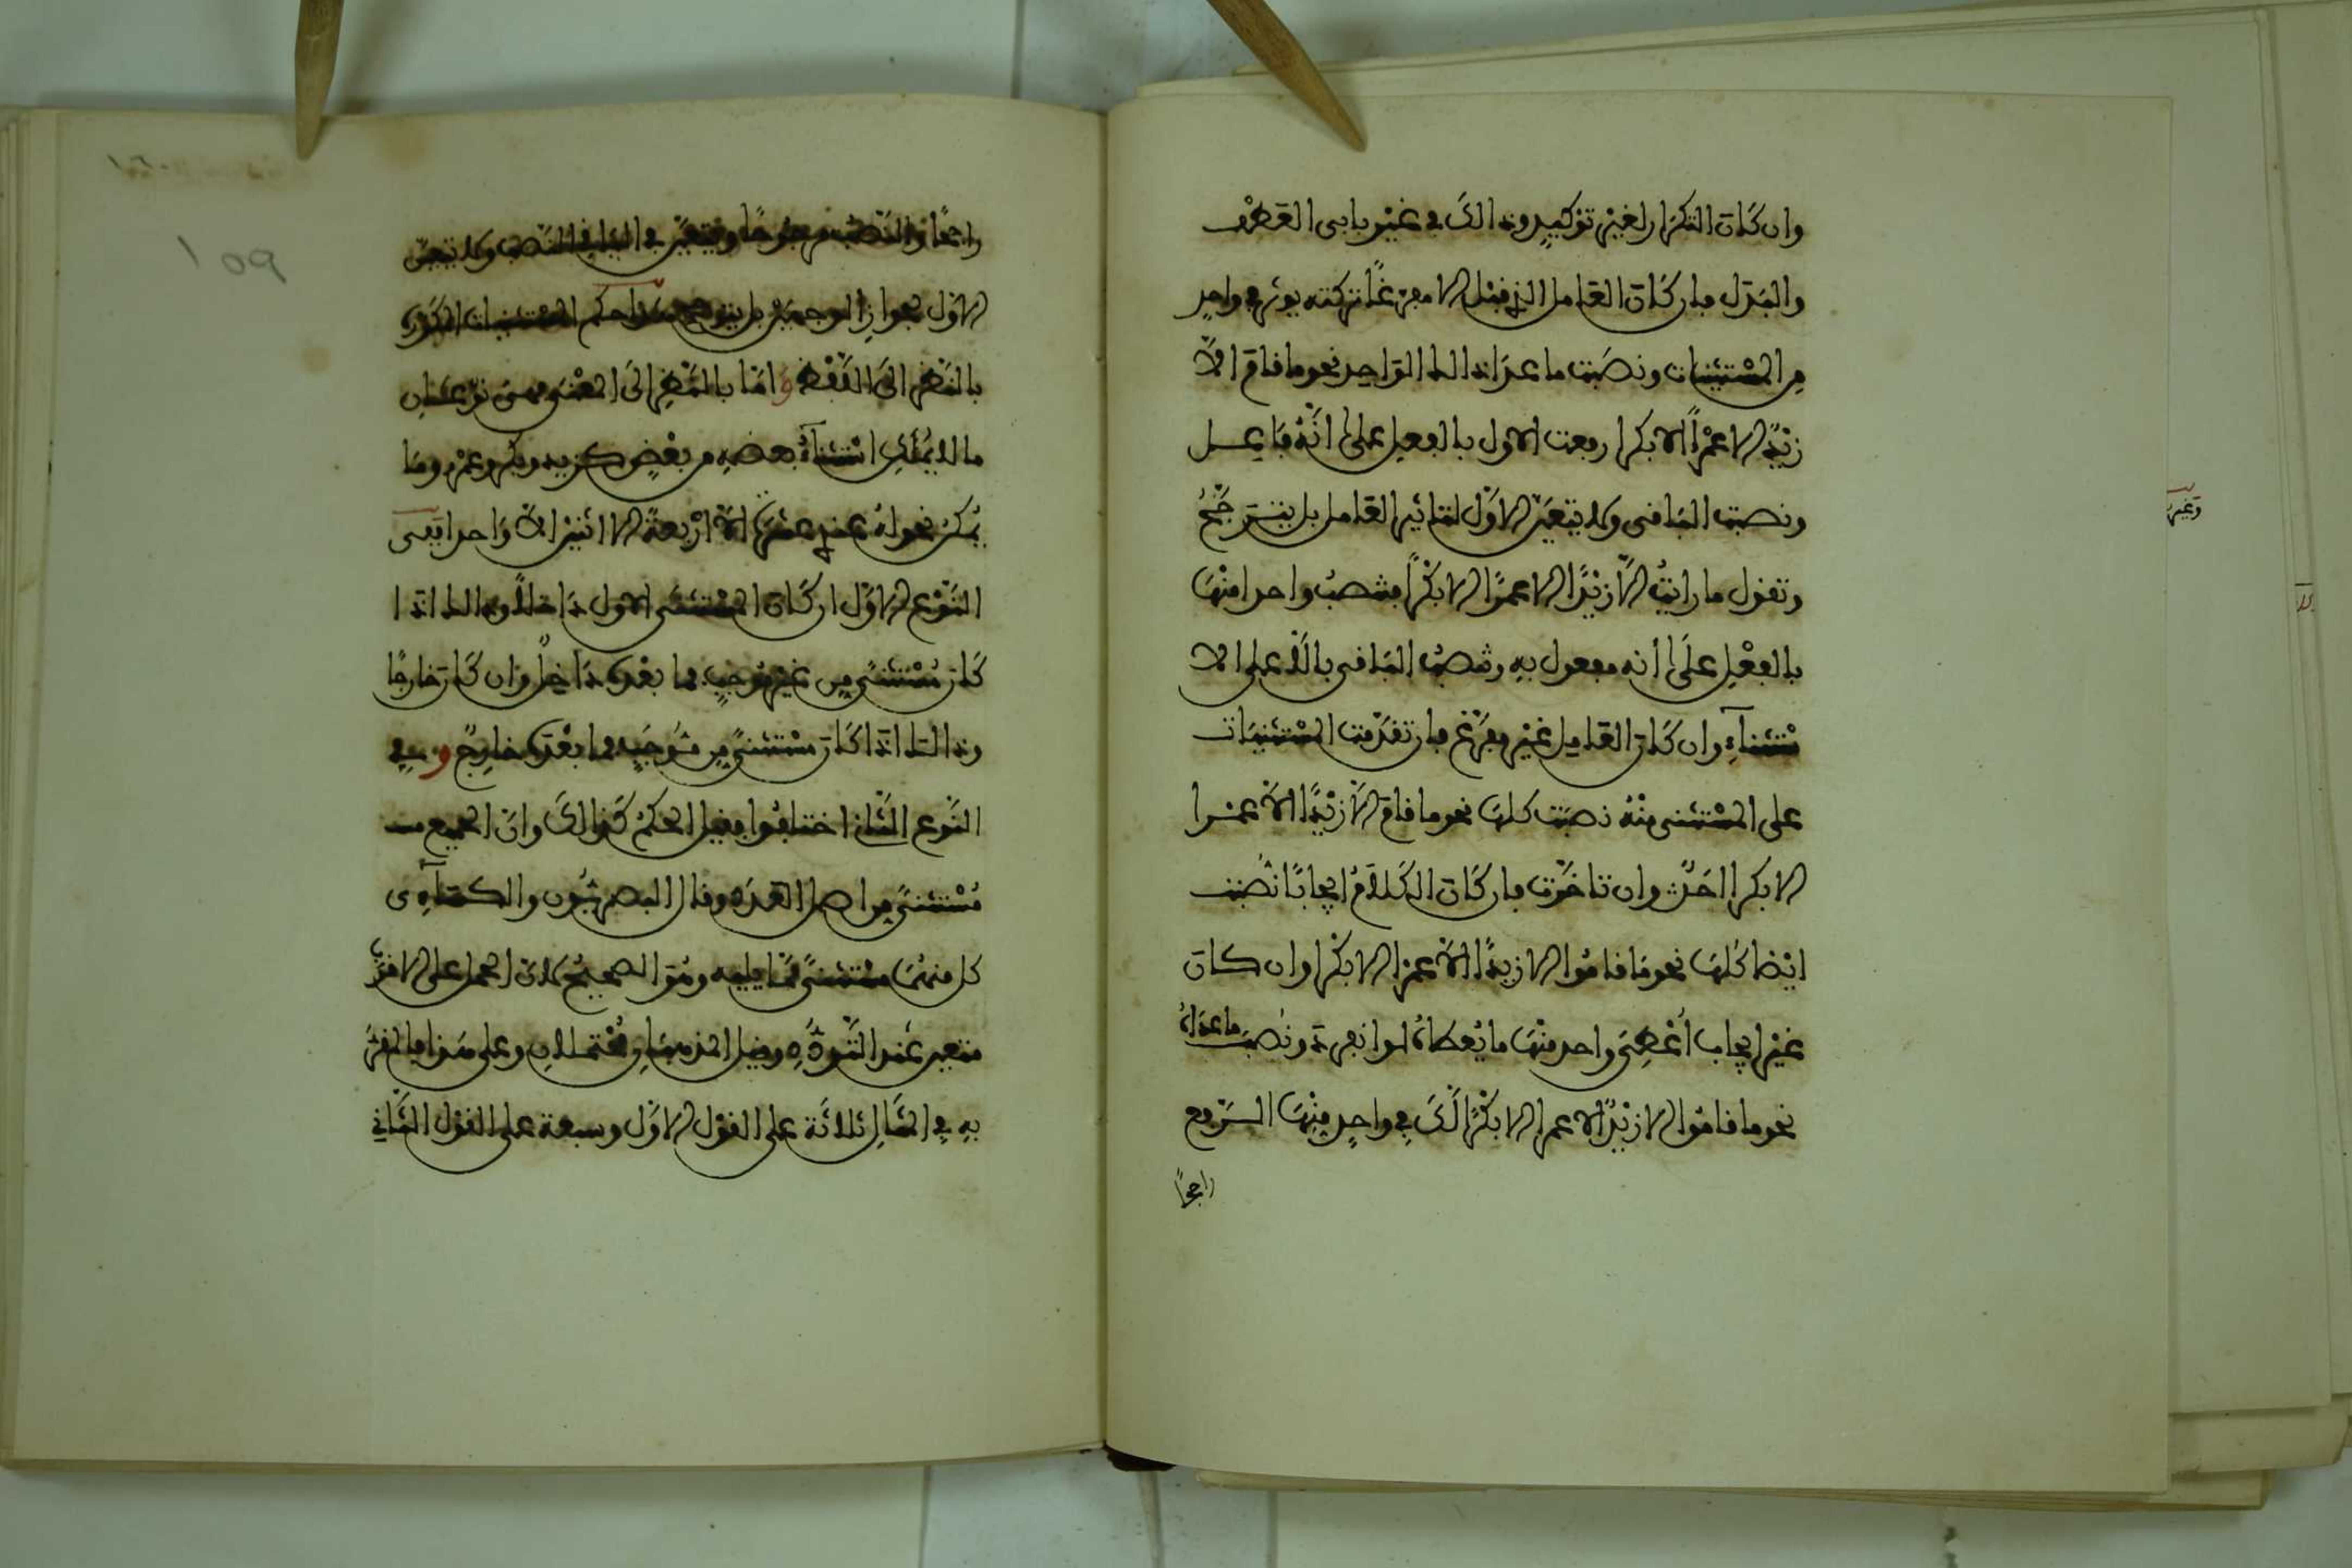 وان كَانَ التكرَار لغيْر توْكيدٍ وذالكَ في غيْر بابى العَطْف
والبَدَل فان كَانَ العَامل الذي قبْل الا مفرغًا تركته يوثر في واحدٍ
من المسْتثنيات ونصَبْت ما عدَا ذالك الوَاحِد نحو ما قامَ الاَّ
زيْدٌ الا عمْرًا الا بكرا رفعت الاول بالفعل على انَّهُ فاعل
ونصبت البَاقى ولا يتعيَّن الاوَّل لتاثير العَامل بل يترجَّحُ
وتقول ما رايْتُ الاَّ زيْدًا الا عمرًا الا بكْرًا فتنصبُ واحدا منْهَا
بالفعْل علَى أنه مفعول بهِ وتنصبُ البَاقى بالاَّ على الا
ستثناءِ وان كَانَ العَامِل غيْر مفرَّغ فان تقدَّمت المسْتثنيَات
على المسْتثنى منْهُ نصبَت كلهَا نحو ما قامَ الاَّ زيْدًا الاَّ عمْرا
الا بكرا احَدٌ وان تاخَّرت فان كَانَ الكَلاَمُ ايجابًا نُصبَت
ايْضا كُلهَا نحو قامُوا الا زيدًا الاَّ عمرا الا بكْرا وان كان
غيْر ايجاب أُعْطِيَ واحد منْهَا ما يُعطاهُ لو انفرَدَ ونُصبَ ما عَدَاهُ
نحو ما قامُوا الا زيْدٌ الا عمرا الا بكْرًا لكَ في واحدٍ منْهَا الرَّفع
راجحًا
راجحًا والنَّصْب مرجُوحًا ويتعيَّن في البَاقي النَّصب ولا يتعيّن
الاوَّل لجوازِ الوجهيْن بل يترجح هذا حكم المسْتثنيات المكرَّرة
بالنَّظر الىَ اللَّفْظ وَامَّا بالنَّظرِ الىَ المعْنى فهىَ نوْعَانِ
ما لا يُمْكن اسْتثناءُ بعضهِ من بعْضٍ كزيد وبكر وعمْرٍو ومَا
يُمْكنُ نحو لهُ عندي عشرَة الاَّ أرْبعةً الا اثنيْن الاَّ وَاحدا ففى
النَّوْع الاوَّل ان كَانَ المسْتثنَى الاول دَاخلاً وذالك اذَا
كَانَ مُسْتثنًى مِن غيْر مُوجبٍ فما بعْدَهُ دَاخِلٌ وان كَانَ خارجًا
وذالكَ اذَا كَانَ مسْتثنًى مِن مُوجَبٍ فما بعْدَهُ خارِجٌ وفي
النَّوْع الثَّانى اختلفُوا فقيل الحكمُ كَذالكَ وانَّ الجميع
مُسْتثنًى من اصل العَدَدِ وقال البصريُّون والكسَاءِى
كل منهُمَا مسْتثنًى ممَّا يليه وهُوَ الصحيحُ لانَّ الحمل على الاقرَبِ
متعيِّن عنْد التَّردُّدِ وقيل المذهبَانِ مُحْتملانِ وعلى هَذا فالمقرُّ
بهِ في المثَالِ ثلاثَة على القوْل الاوَّل وسبعة على القوْل الثَّانى
وغير
١٥٩